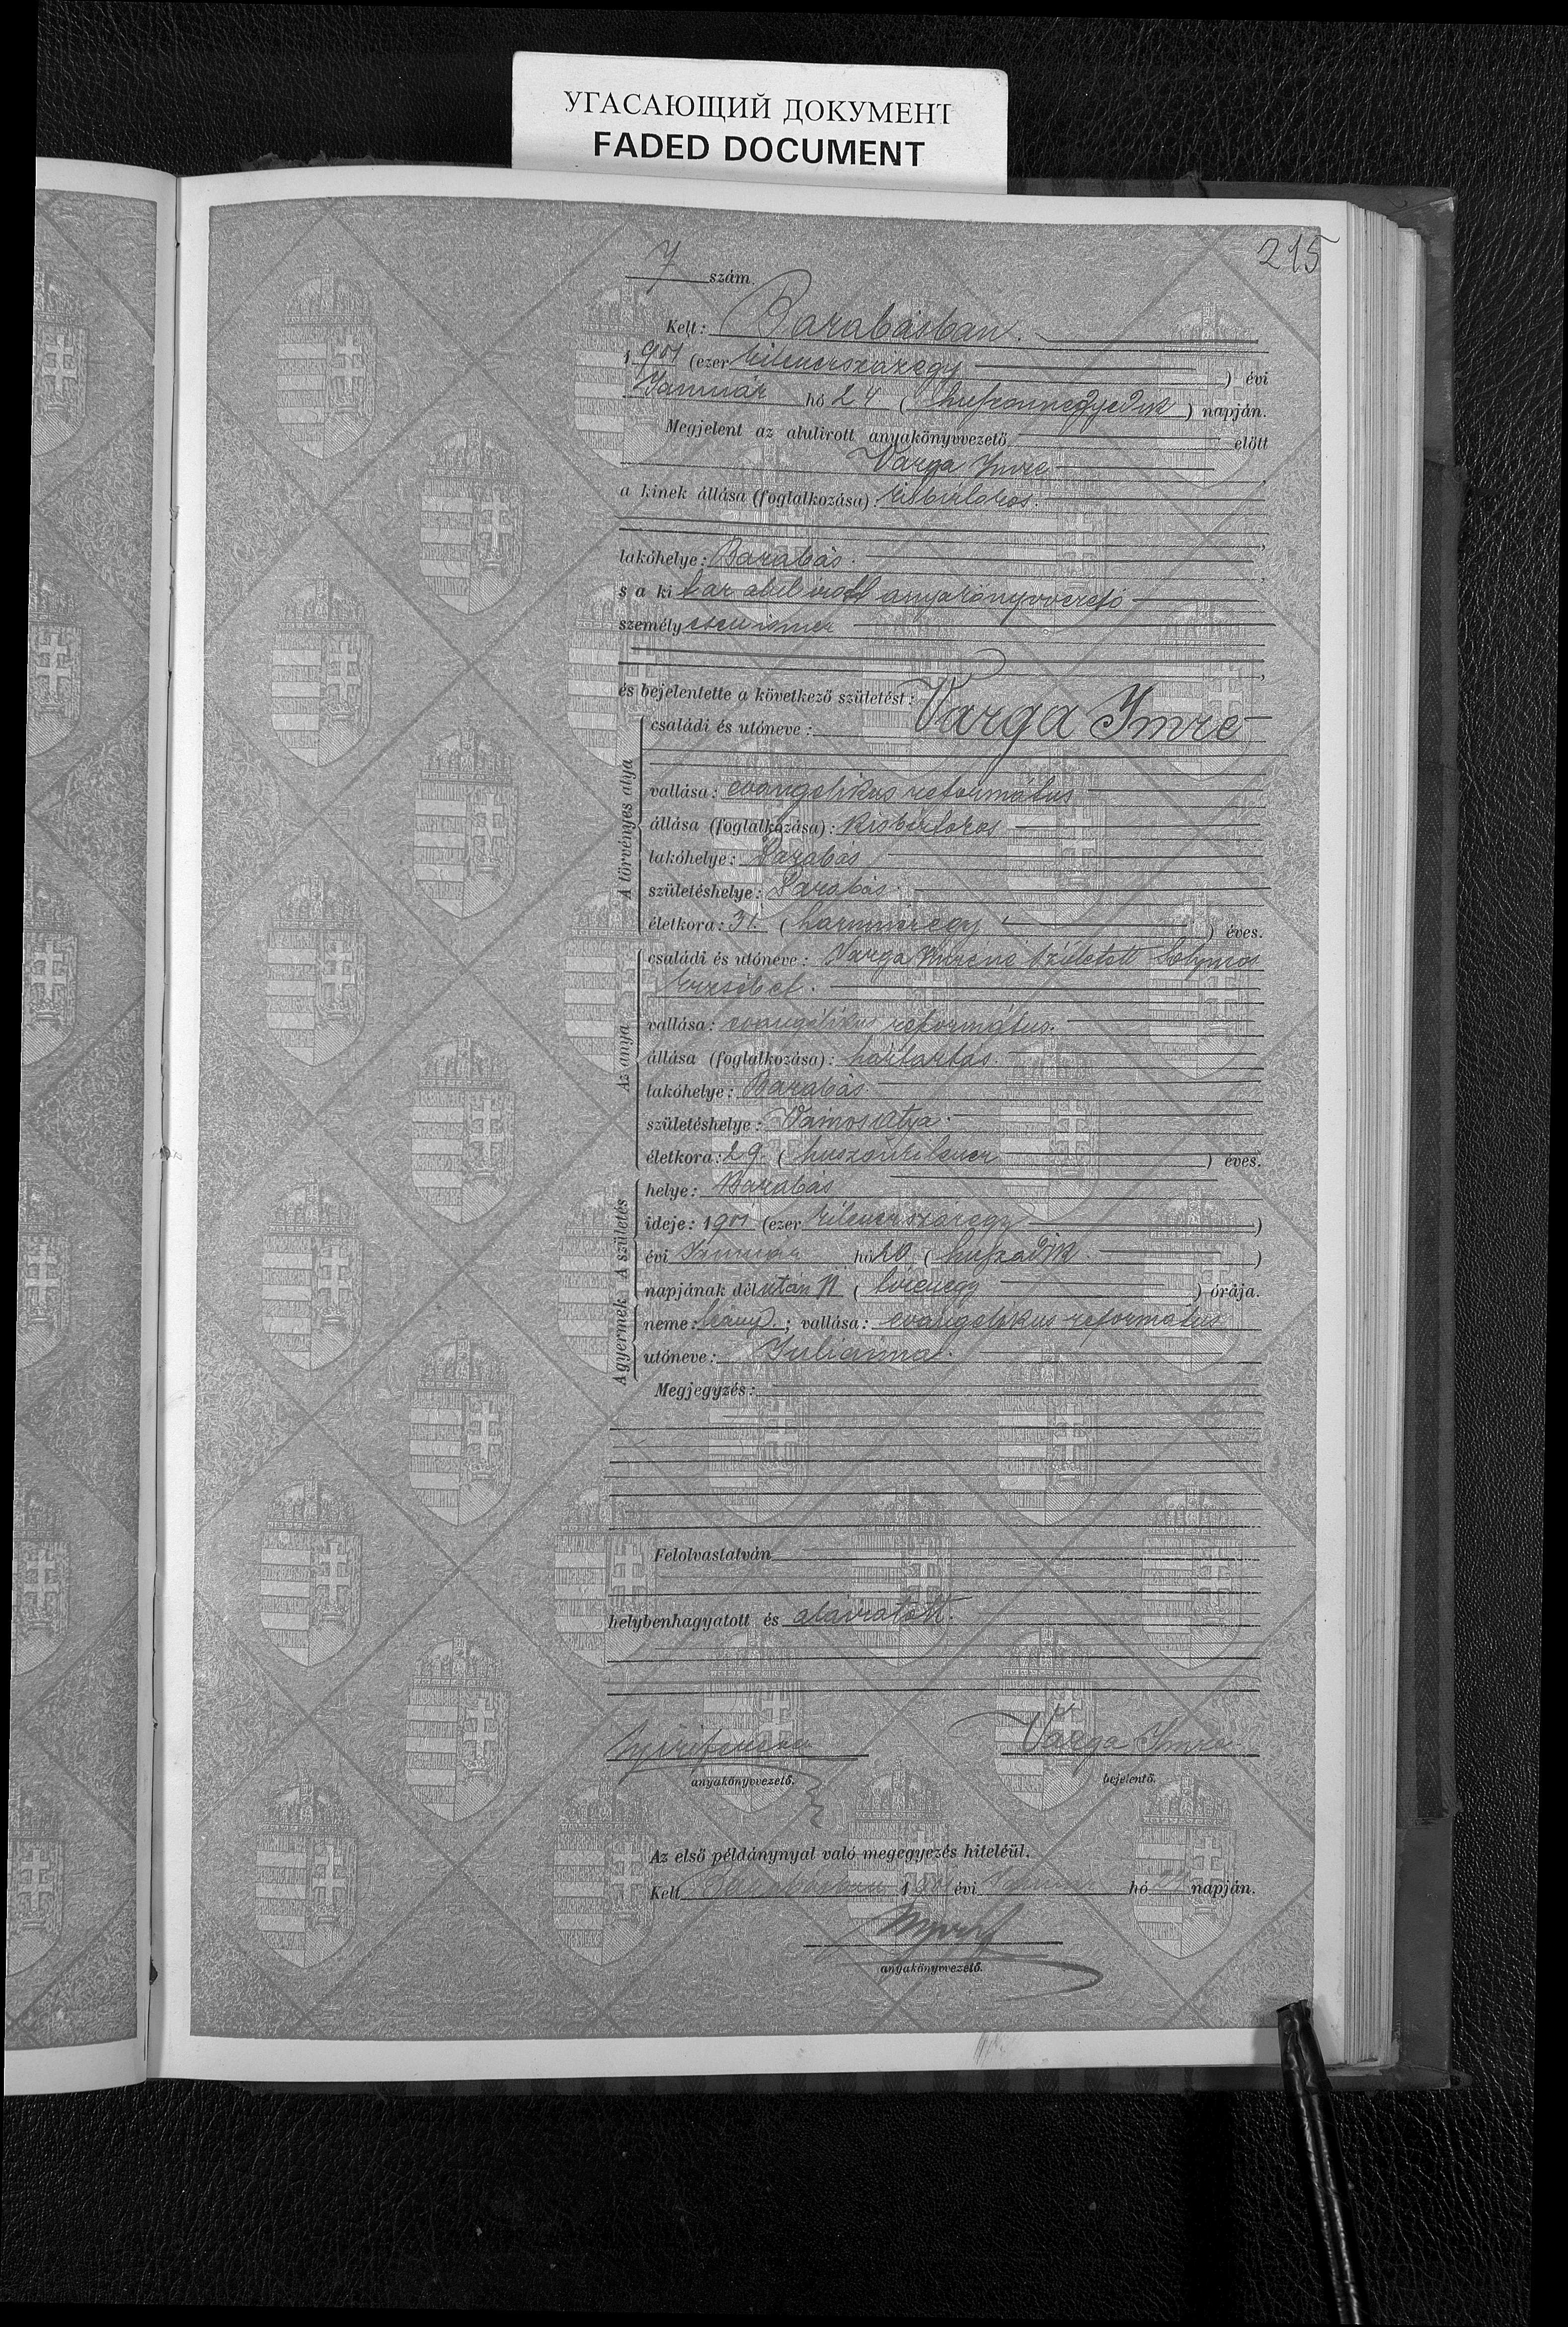 УГАСАЮЩИЙ ДОКУМЕНТ
FADED DOCUMENT
215
7 szám.
Kelt: Barabásban.
1901 (ezer kilenczszázegy) évi
Január hó 24 (huszonnegyedik) napján.
Megjelent az alulirott anyakönyvvezető előtt
Varga Imre,
a kinek állása (foglalkozása): kisbirtokos.
lakóhelye: Barabás.
s a kit az alulirott anyakönyvvezető
személyesen ismer
és bejelentette a következő születést:
A törvényes atya
családi és utóneve: Varga Imre
vallása: evangelikus református
állása (foglalkozása): kisbirtokos
lakóhelye: Barabás
születéshelye: Barabás.
életkora: 31. (harminczegy) éves.
Az anya
családi és utóneve: Varga Imréné született Solymos
Erzsébet.
vallása: evangélikus református.
állása (foglalkozása): háztartás.
lakóhelye: Barabás.
születéshelye: Vámosatya.
életkora: 29. (huszonkilencz) éves.
A születés
helye: Barabás
ideje: 1901 (ezer kilenczszázegy)
évi Január hó 20 (huszadik)
napjának délután 11 (tizenegy) órája.
A gyermek
neme: leány.; vallása: evangelikus református
utóneve: Juliánna.
Megjegyzés:
Felolvastatván
helybenhagyatott és aláiratott.
Varga Imre
anyakönyvvezető. bejelentő.
Az első példánynyal való megegyezés hiteléül.
Kelt Barabásban 1901 évi Január hó 24 napján.
anyakönyvvezető.